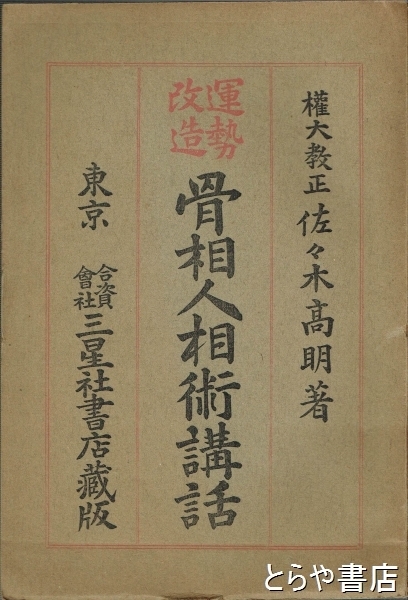 權大教正 佐々木高明著
運勢
改造
骨相人相術講話
東京 合資會社 三星社書店藏版
とらや書店